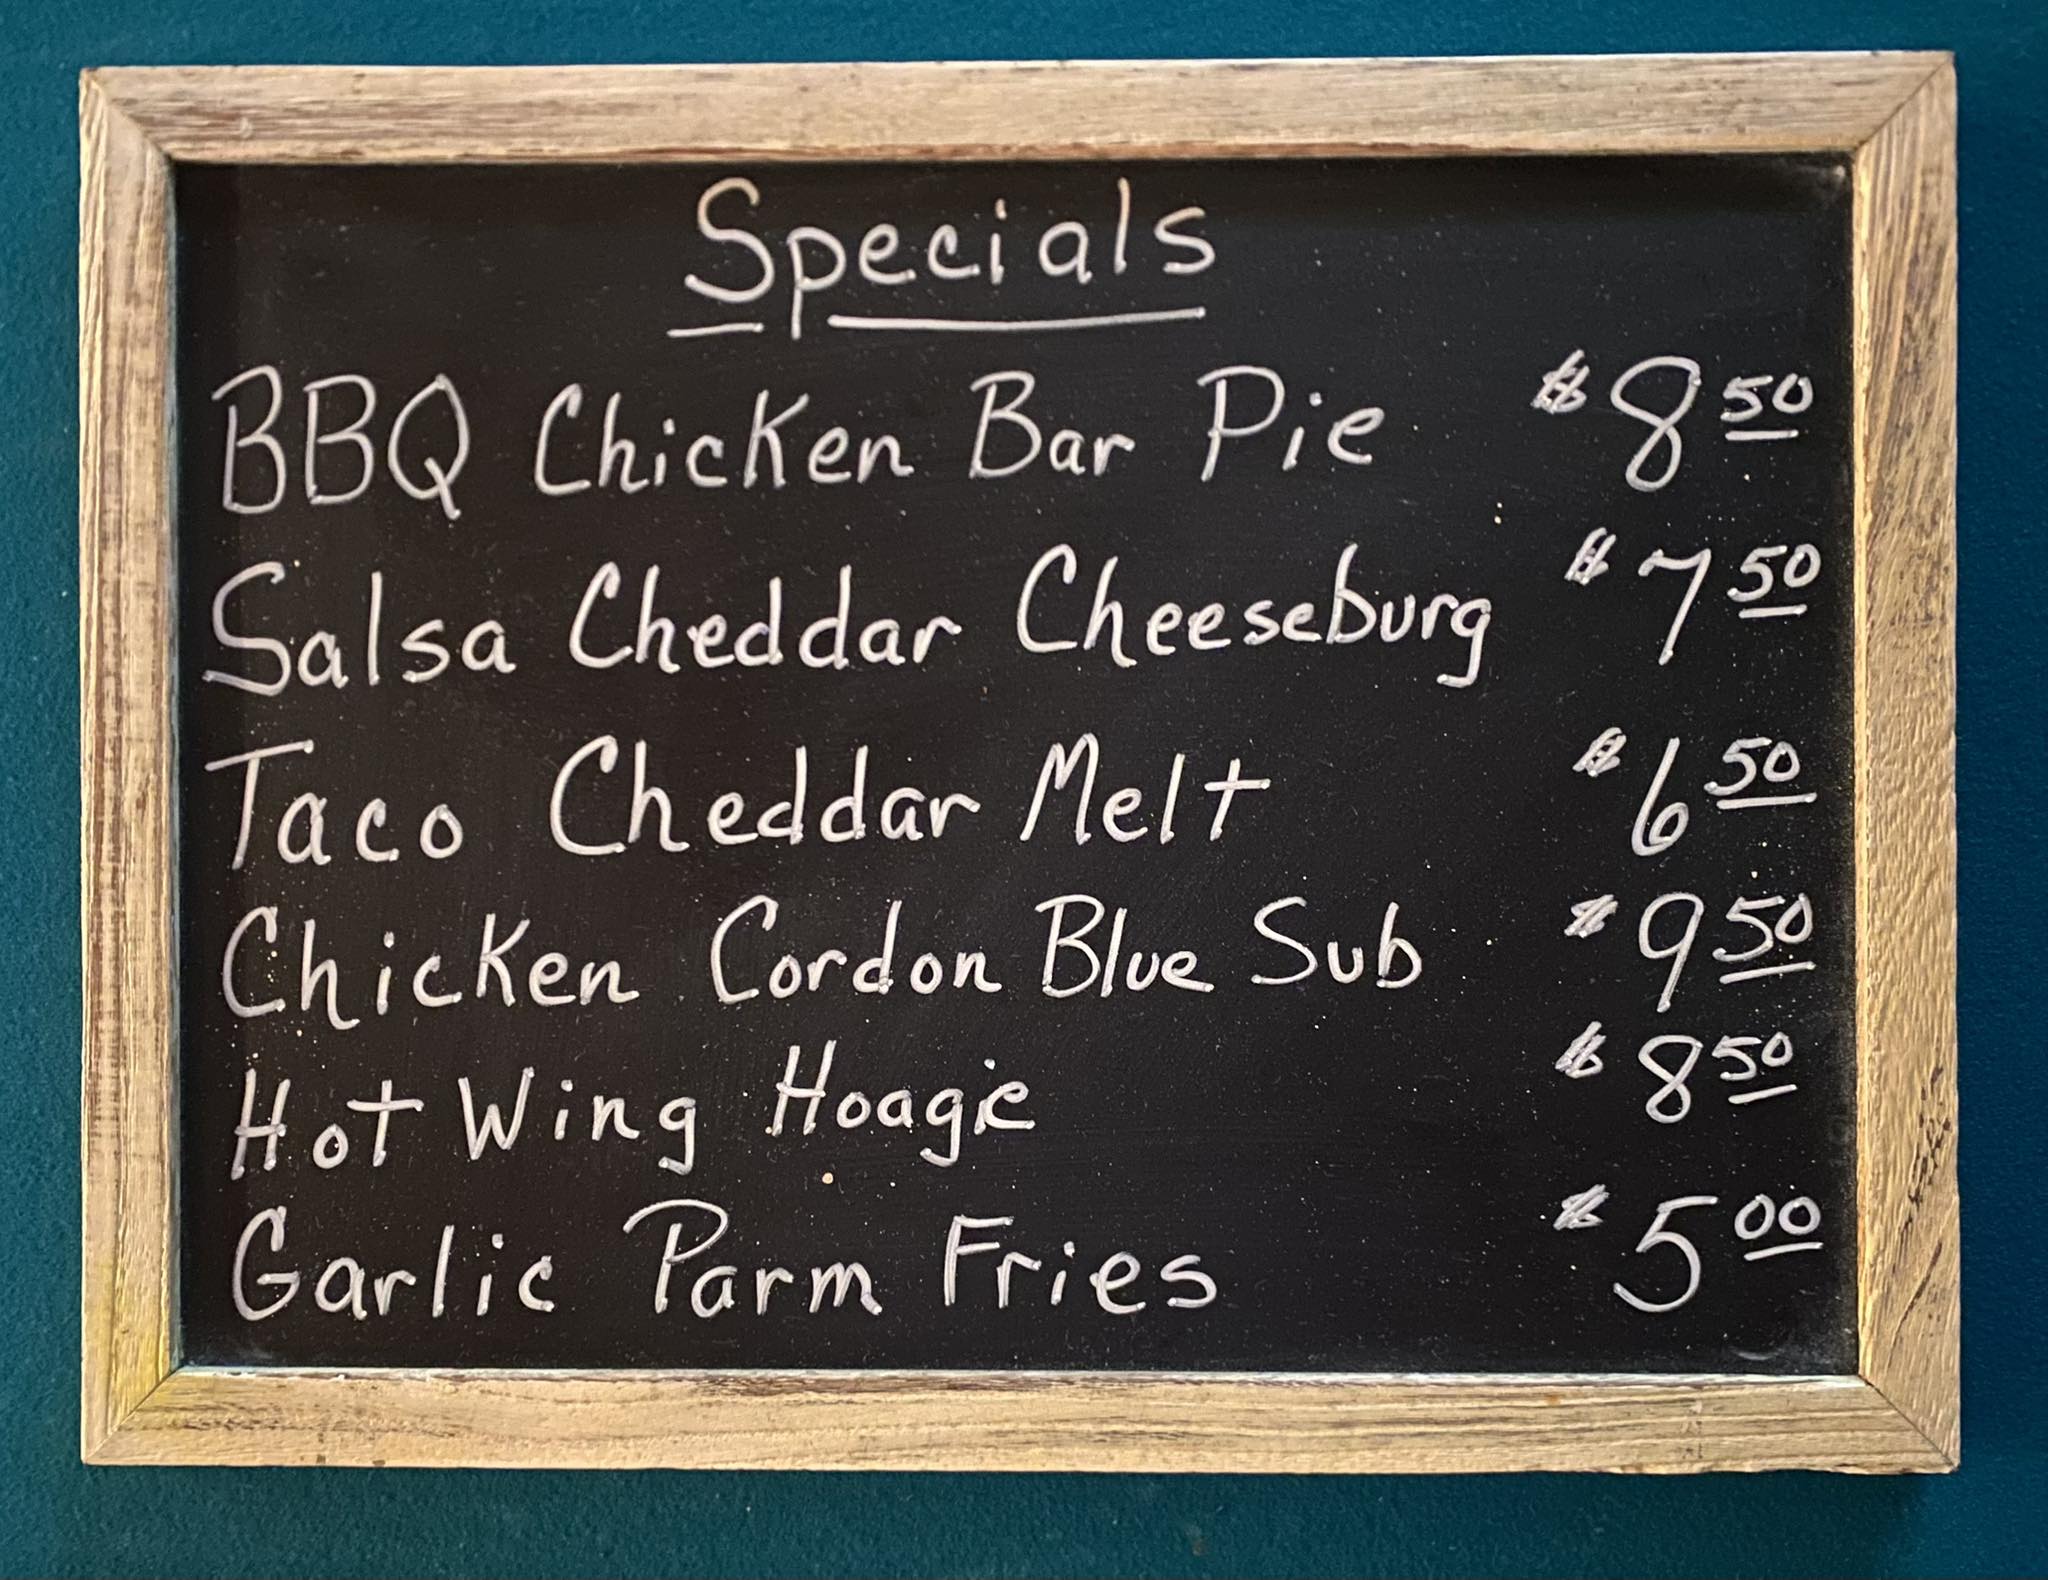 Specials
BBQ Chicken Bar Pie $8 50
Salsa Cheddar Cheeseburg $7 50
Taco Cheddar Melt $6 50
Chicken Cordon Blue Sub $9 50
Hot Wing Hoagie $8 50
Garlic Parm Fries $5 00